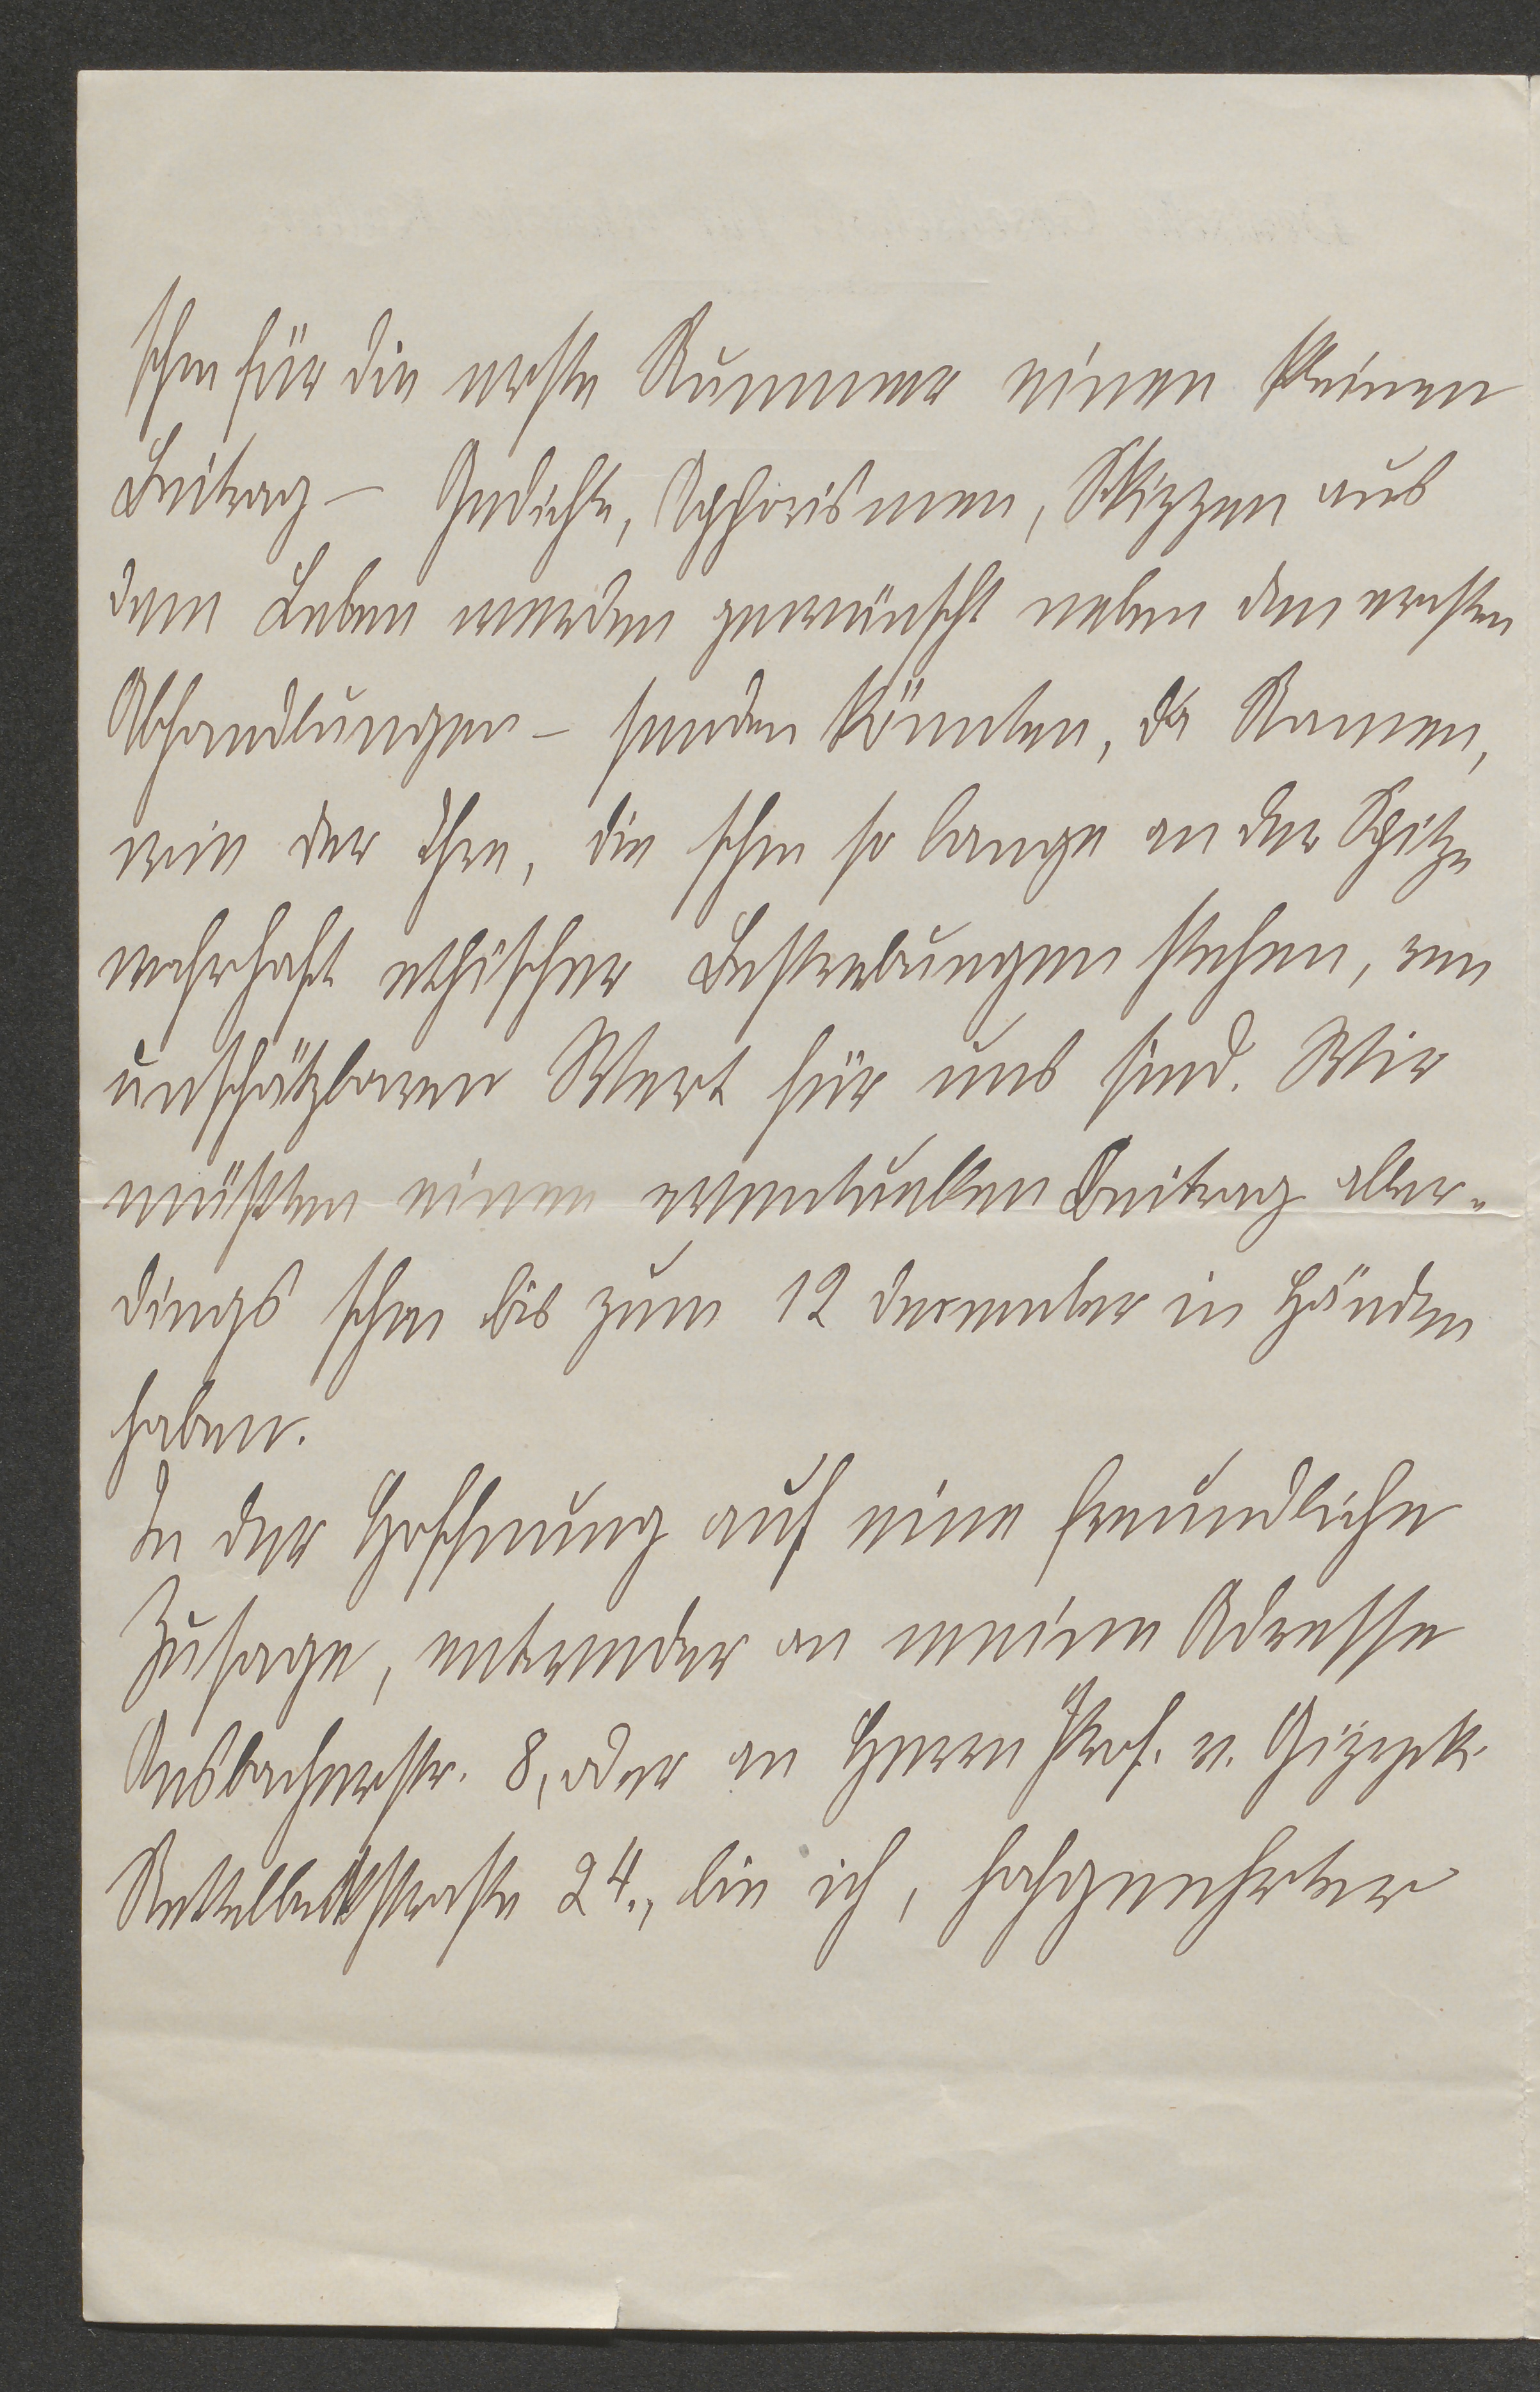 schon für die erste Nummer einen kleinen
Beitrag – Gedichte, Aphorismen, Skizzen aus
dem Leben werden gewünscht neben den ernsten
Abhandlungen – senden könnten, da Namen,
wie der Ihre, die schon so lange an der Spitze
wahrhaft ethischer Bestrebungen stehen, von
unschätzbaren Wert für uns sind. Wir
müßten einen eventuellen Beitrag aller-
dings schon bis zum 12 december in Händen
haben.
In der Hoffnung auf eine freundliche
Zusage, entweder an meine Adresse
Ansbacherstr. 8, oder an Herrn Prof. v. Gizycki
Nettelbeckstraße 24., bin ich, hochgeehrter